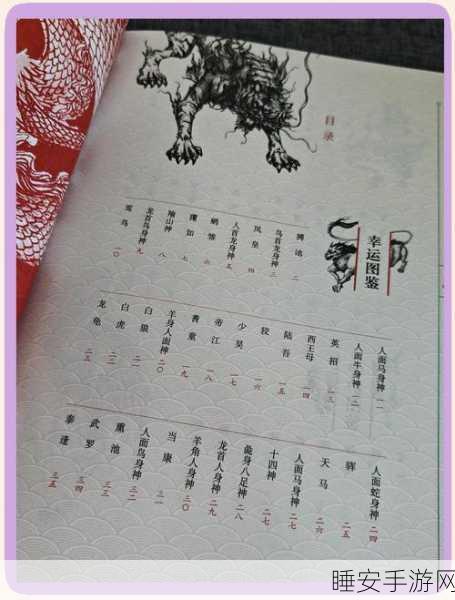 目录
幸运图鉴
二
鸟首龙身神 三
凤皇 四
人首龙身神 五
六
瞿如 七
八
龙首鸟身神 九
鸾鸟 一〇
人面马身神 一一
人面牛身神 一二
英招 一三
西王母 一四
陆吾 一五
狡 一六
少昊 一七
帝江 一八
耆童 一九
羊身人面神 二〇
白狼 二一
白虎 二二
龙龟
人面蛇身神 二四
二五
天马 二六
人面马身神 二七
十四神 二七
彘身八足神 二八
龙首人身神 二九
羊角人身神 三〇
当康 三一
人面鸟身神 三二
熏池 三三
武罗 三四
泰逢 三五
睡安手游网